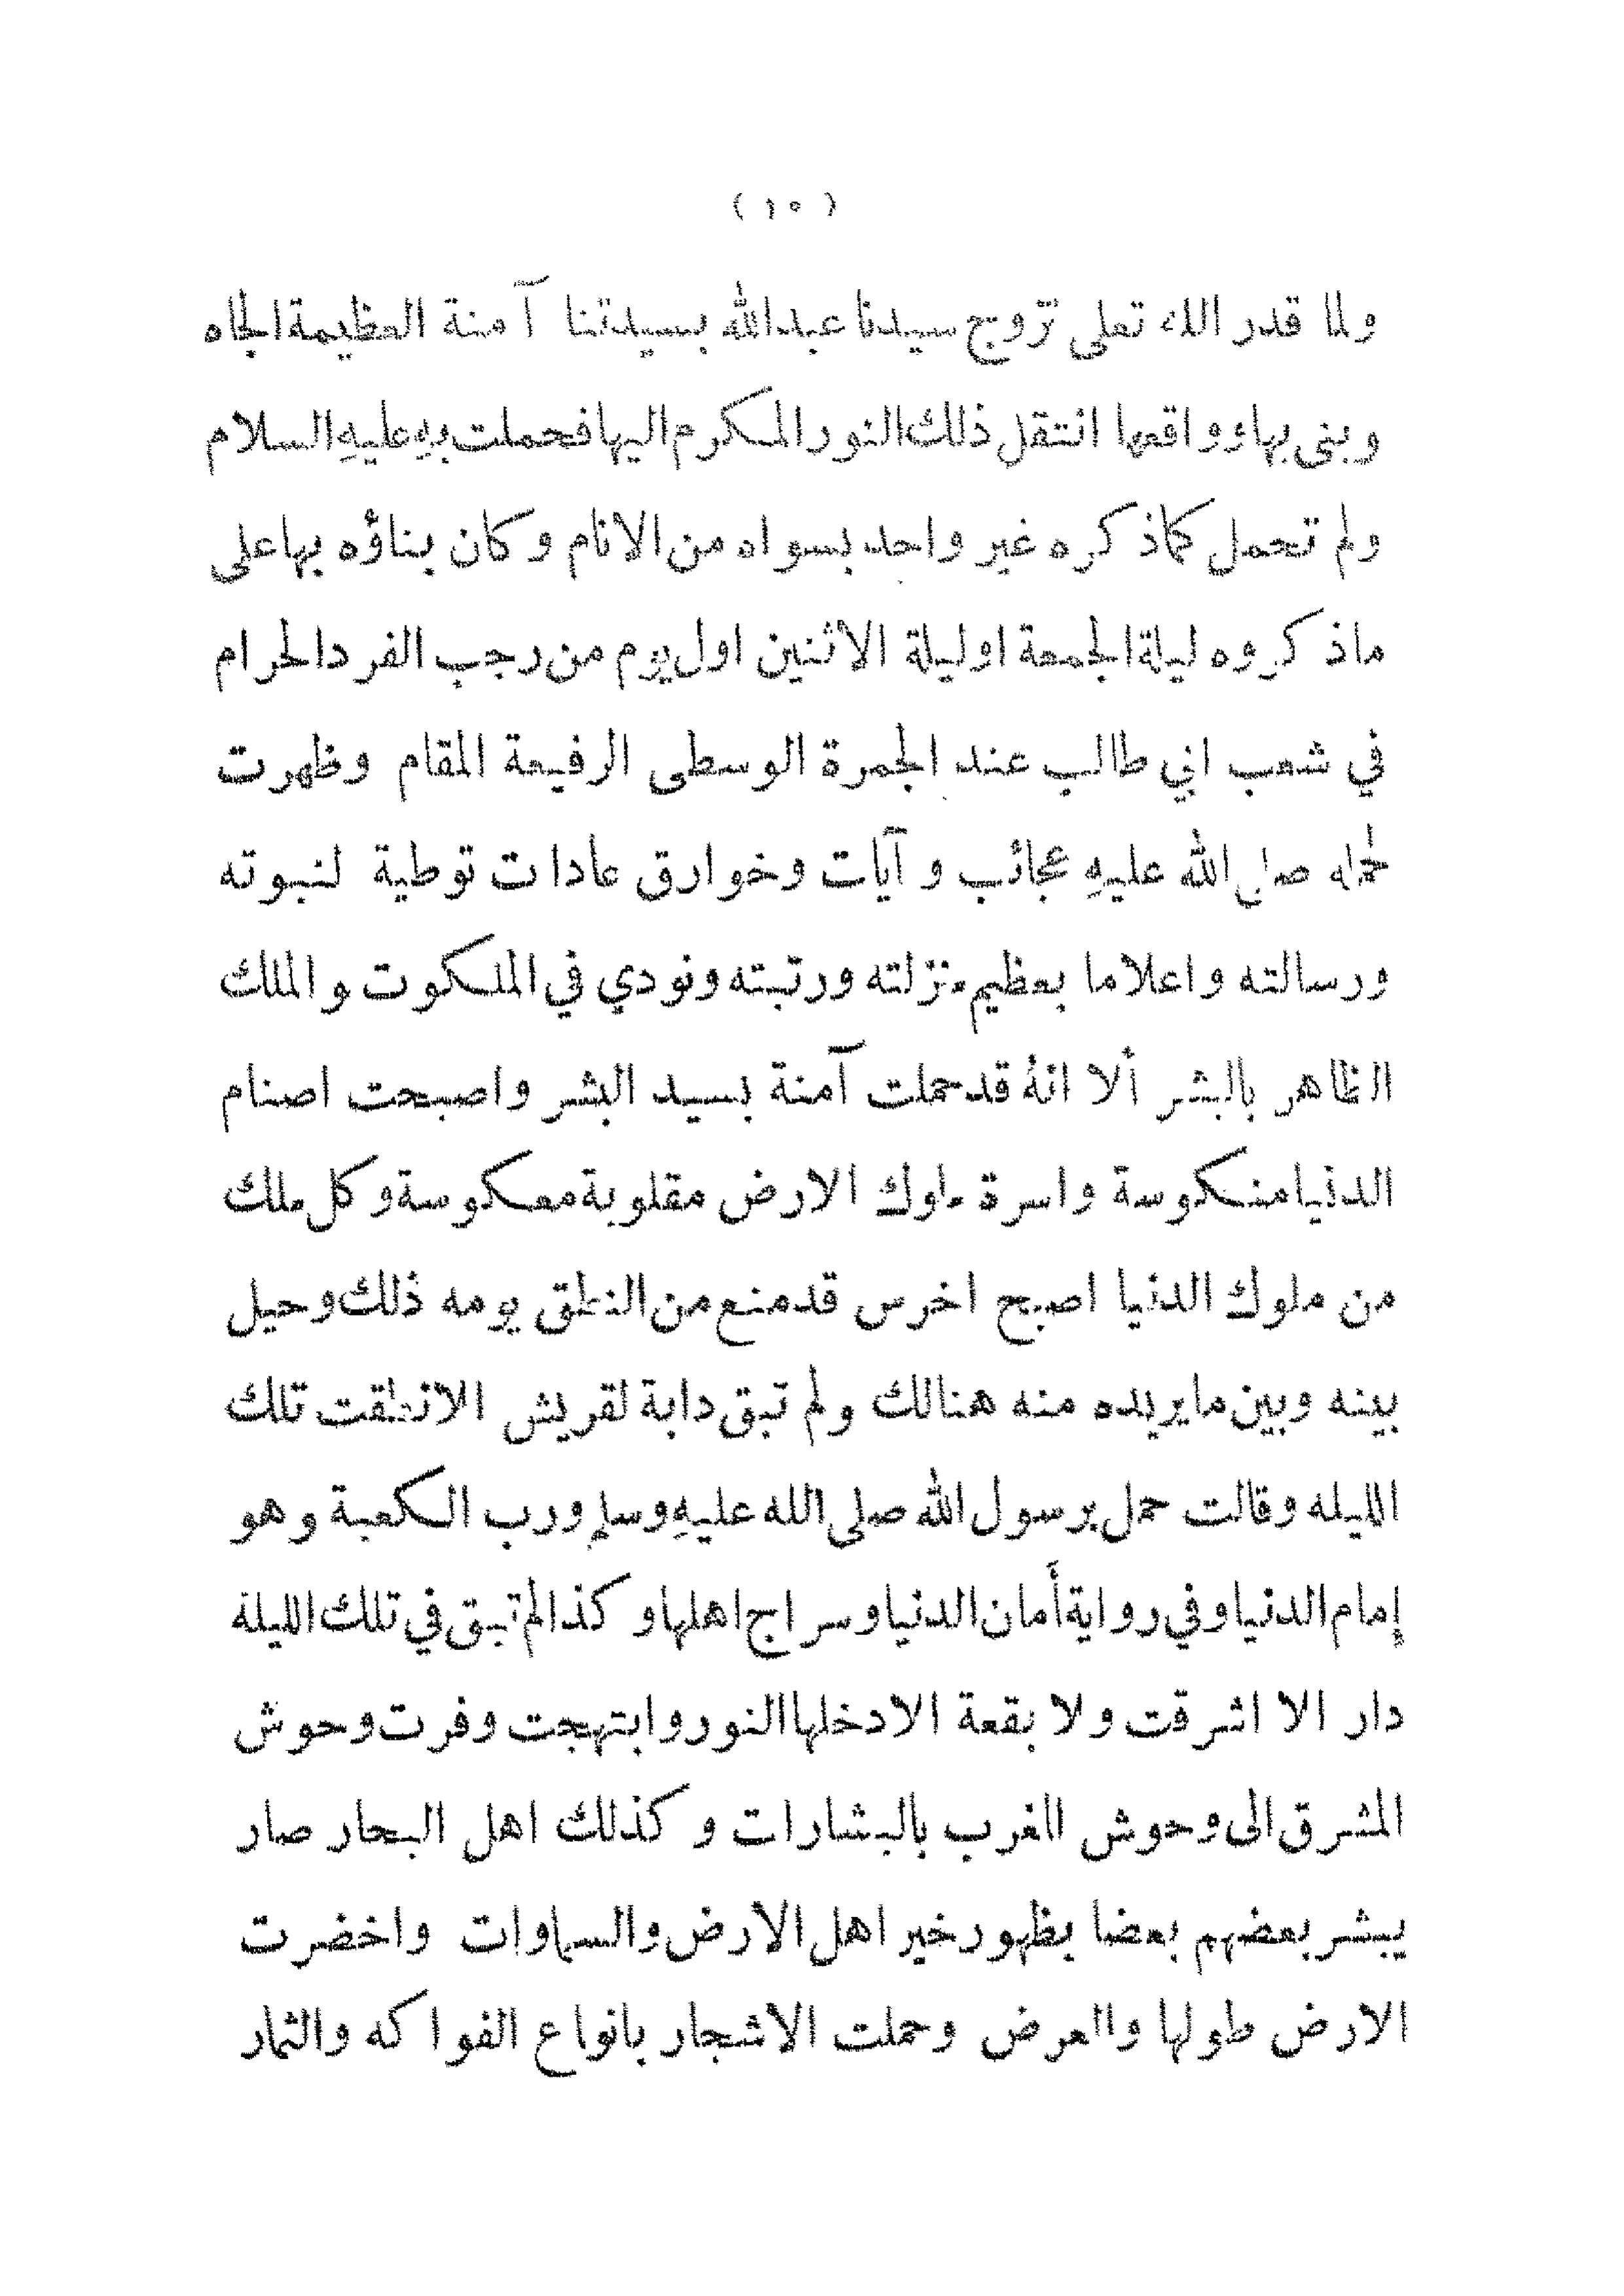 (١٥)
ولما قدر الله تعلى تزوج سيدنا عبدالله بسيدتنا آمنة العظيمة الجاه
وبنى بهاء وواقعها انتقل ذلك النور المكرم اليها فحملت بهِ عليهِ السلام
ولم تحمل كماذكره غير واحد بسواه من الانام وكان بناؤه بها على
ماذكروه ليلة الجمعة اوليلة الاثنين اول يوم من رجب الفرد الحرام
في شعب ابي طالب عند الجمرة الوسطى الرفيعة المقام وظهرت
لحمله صلى الله عليهِ عجائب و آيات وخوارق عادات توطية لنبوته
ورسالته واعلاما بعظيم منزلته ورتبته ونودي في الملكوت والملك
الظاهر بالبشر ألا انهُ قد حملت آمنة بسيد البشر واصبحت اصنام
الدنيا منكوسة واسرة ملوك الارض مقلوبة معكوسة وكل ملك
من ملوك الدنيا اصبح اخرس قد منع من النطق يومه ذلك وحيل
بينه وبين مايريده منه هنالك ولم تبق دابة لقريش الانطقت تلك
الليله وقالت حمل برسول الله صلى الله عليهِ وسلم ورب الكعبة وهو
إمام الدنيا وفي رواية أمان الدنيا وسراج اهلها وكذالم تبق في تلك الليلة
دار الا اشرقت ولا بقعة الادخلها النور وابتهجت وفرت وحوش
المشرق الى وحوش الغرب بالبشارات وكذلك اهل البحار صار
يبشر بعضهم بعضا بظهور خير اهل الارض والسماوات واخضرت
الارض طولها والعرض وحملت الاشجار بانواع الفواكه والثمار